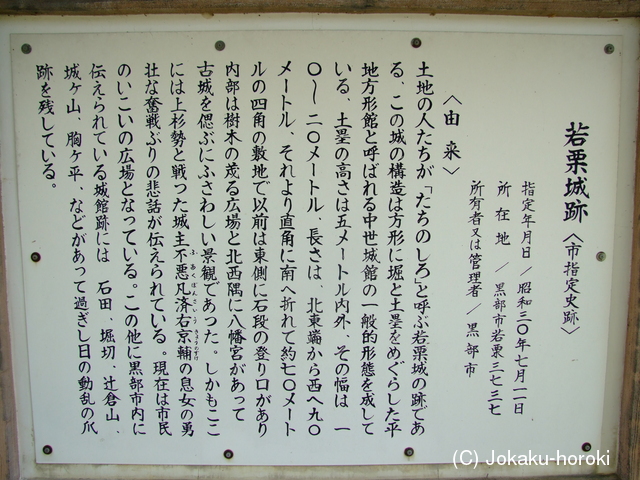 若栗城跡〈市指定史跡〉
指定年月日／昭和三〇年七月一一日
所在地／黒部市若栗三七三七
所有者又は管理者／黒部市
〈由来〉
土地の人たちが「たちのしろ」と呼ぶ若栗城の跡であ
る、この城の構造は方形に堀と土塁をめぐらした平
地方形館と呼ばれる中世城館の一般的形態を成して
いる、土塁の高さは五メートル内外、その幅は一
〇〜二〇メートル、長さは、北東端から西へ九〇
メートル、それより直角に南へ折れて約七〇メート
ルの四角の敷地で以前は東側に石段の登り口があり
内部は樹木の茂る広場と北西隅に八幡宮があって
古城を偲ぶにふさわしい景観であつた。しかもここ
には上杉勢と戦った城主不悪凡済右京輔の息女の勇
壮な奮戦ぶりの悲話が伝えられている。現在は市民
のいこいの広場となっている。この他に黒部市内に
伝えられている城館跡には 石田、堀切、辻倉山、
城ヶ山、胸ヶ平、などがあって過ぎし日の動乱の爪
跡を残している。
(C) Jokaku-horoki